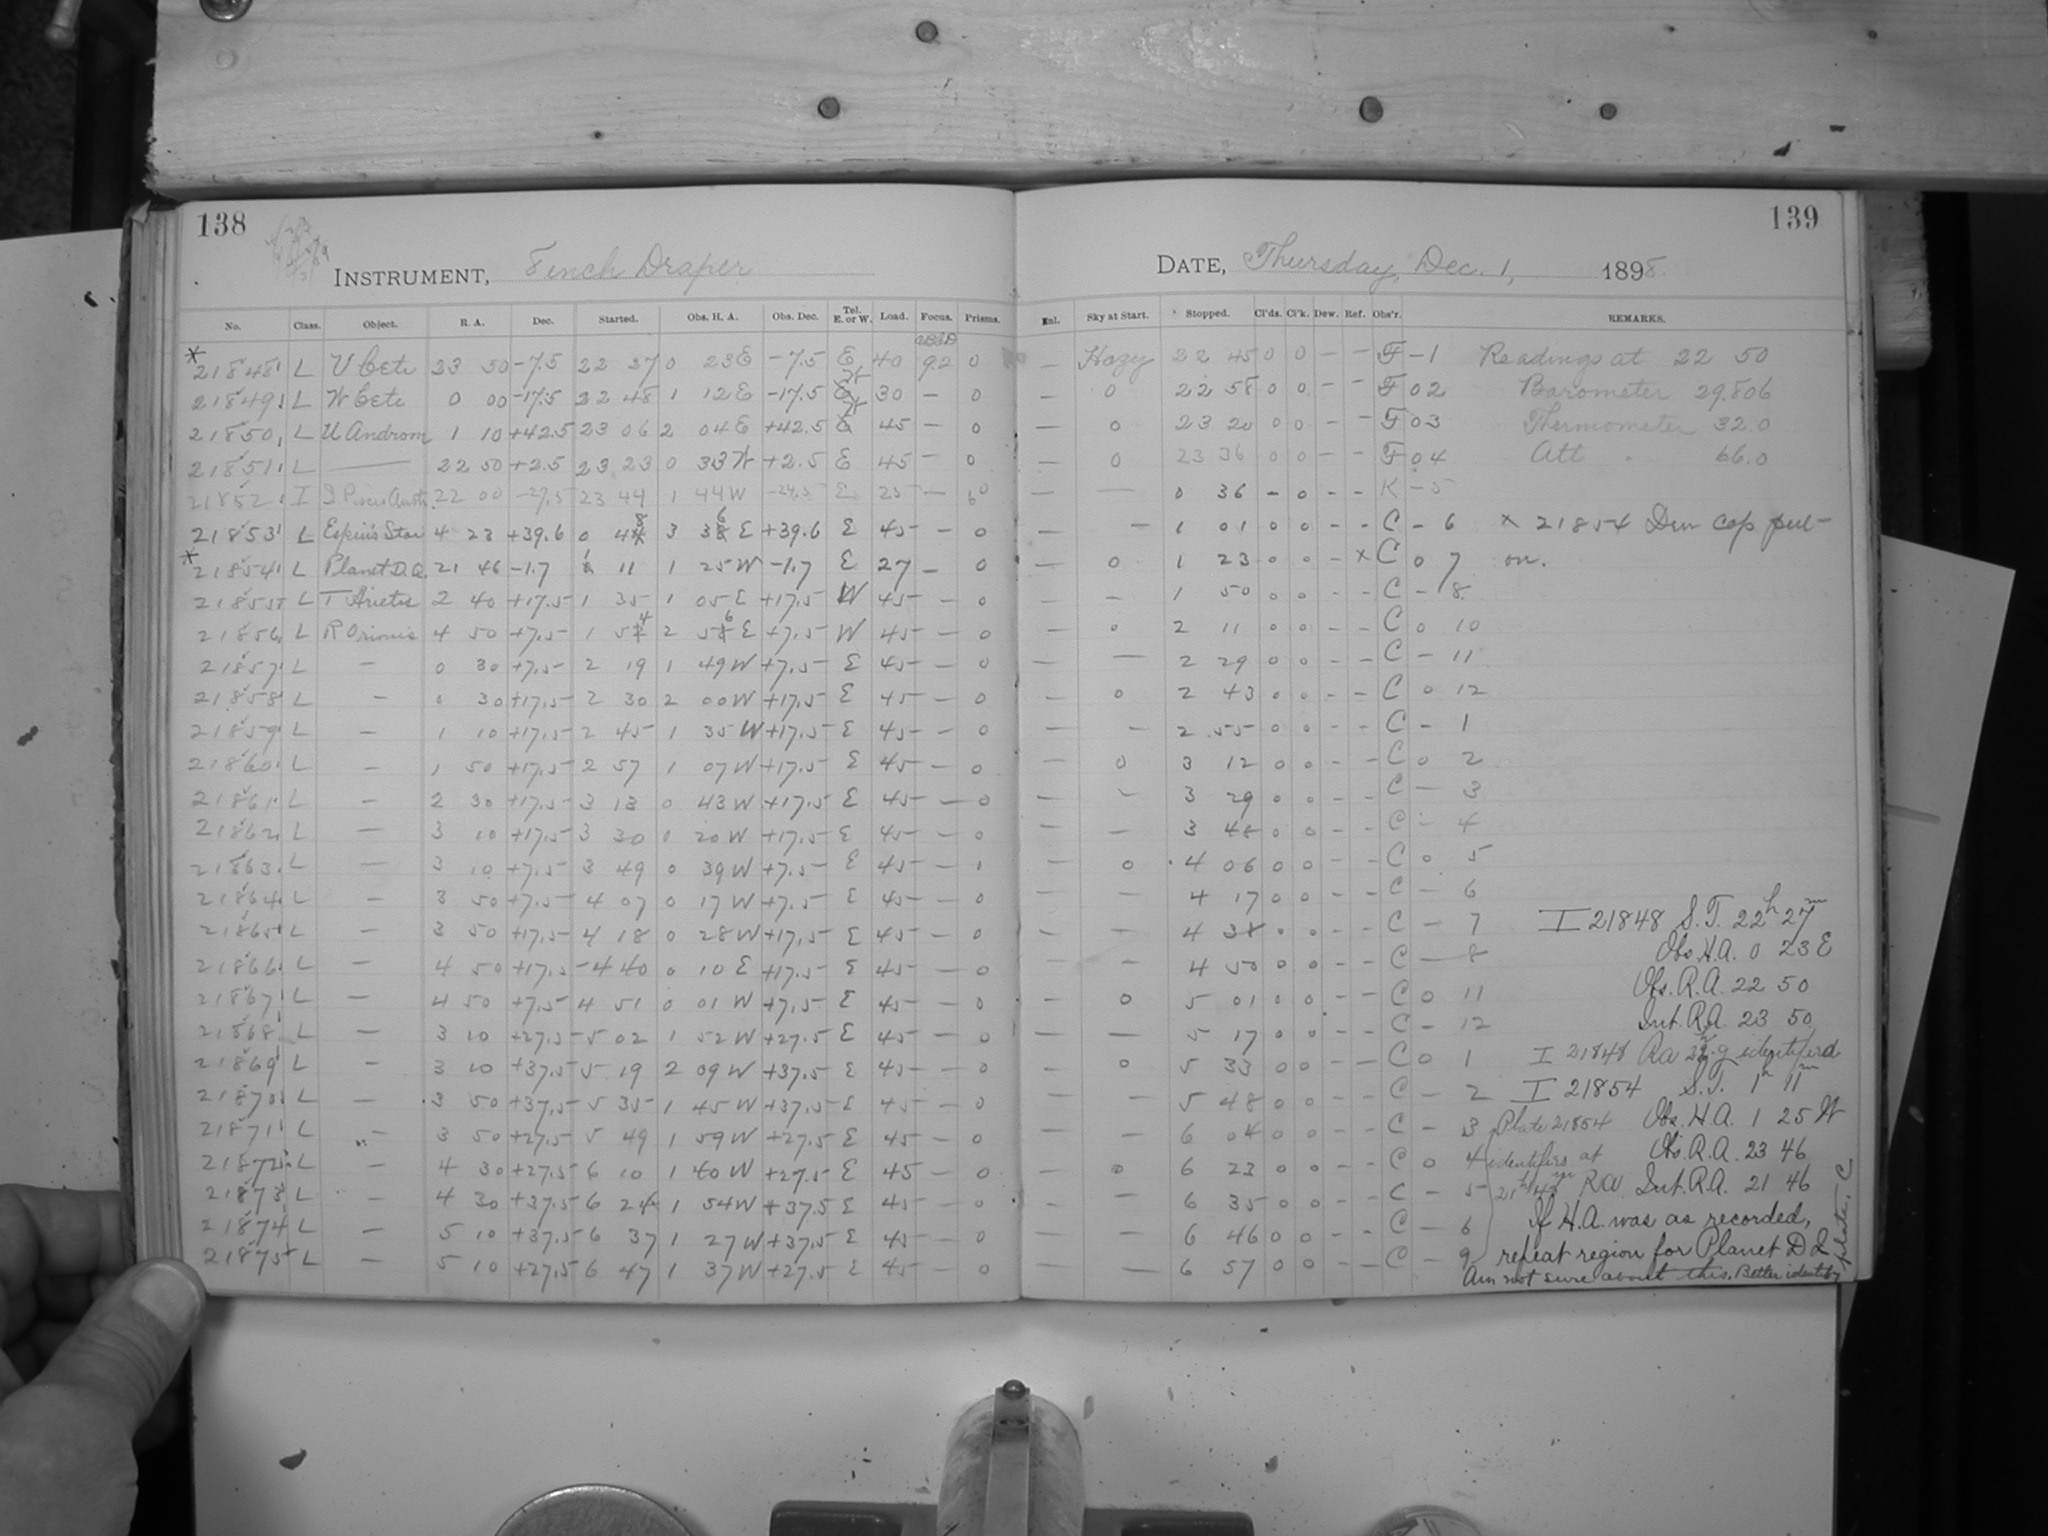 138
139
INSTRUMENT, 8 inch Draper
DATE, Thursday, Dec. 1, 1898.
No. Class. Object. R. A. Dec. Started. Obs. H. A. Obs. Dec. Tel. E. or W. Load. Focus. Prisms. Enl. Sky at Start. Stopped. Cl'ds. Cl'k. Dew. Ref. Obs'r. REMARKS.
* 21848 L U Ceti 23 50 -7.5 22 27 0 23 E -7.5 E 40 92 0 — Hazy 22 45 0 0 – – F – 1 Readings at 22 50
21849 L W Ceti 0 00 -17.5 22 48 1 12 E -17.5 W 30 – 0 — 0 22 58 0 0 – – F 0 2 Barometer 29.806
21850 L U Androm 1 10 +42.5 23 06 2 04 E +42.5 W 45 – 0 — 0 23 20 0 0 – – F 0 3 Thermometer 32.0
21851 L — 22 50 +2.5 23 23 0 33 W +2.5 E 45 – 0 — 0 23 36 0 0 – – F 0 4 Att. " 66.0
21852 I S Piscis Austr. 22 00 -27.5 23 44 1 44 W -24.5 E 25 – 0 — — 0 36 – 0 – – K – 5
21853 L Espin's Star 4 23 +39.6 0 48 3 36 E +39.6 E 45 – 0 – 1 01 0 0 – – C – 6 × 21854 Dew cap put
* 21854 L Planet D.Q. 21 46 -1.7 1 11 1 25 W -1.7 E 27 – 0 — 0 1 23 0 0 – × C 0 7 on.
21855 L T Arietis 2 40 +17.5 1 35 1 05 E +17.5 W 45 – 0 — – 1 50 0 0 – – C – 8
21856 L R Orionis 4 50 +7.5 1 54 2 56 E +7.5 W 45 – 0 — 0 2 11 0 0 – – C 0 10
21857 L – 0 30 +7.5 2 19 1 49 W +7.5 E 45 – 0 — — 2 29 0 0 – – C – 11
21858 L – 0 30 +17.5 2 30 2 00 W +17.5 E 45 – 0 — 0 2 43 0 0 – – C 0 12
21859 L – 1 10 +17.5 2 45 1 35 W +17.5 E 45 – 0 — – 2 55 0 0 – – C – 1
21860 L – 1 50 +17.5 2 57 1 07 W +17.5 E 45 – 0 — 0 3 12 0 0 – – C 0 2
21861 L – 2 30 +17.5 3 13 0 43 W +17.5 E 45 – 0 — – 3 29 0 0 – – C – 3
21862 L – 3 10 +17.5 3 30 0 20 W +17.5 E 45 – 0 — – 3 48 0 0 – – C – 4
21863 L – 3 10 +7.5 3 49 0 39 W +7.5 E 45 – 1 — 0 4 06 0 0 – – C 0 5
21864 L – 3 50 +7.5 4 07 0 17 W +7.5 E 45 – 0 — – 4 17 0 0 – – C – 6
21865 L – 3 50 +17.5 4 18 0 28 W +17.5 E 45 – 0 – – 4 0 0 – – C – 7 I 21848 S.T. 22h 27m
21866 L – 4 50 +17.5 4 40 0 10 E +17.5 E 45 – 0 — – 4 50 0 0 – – C – 8 Obs. H.A. 0 23 E
21867 L – 4 50 +7.5 4 51 0 01 W +7.5 E 45 – 0 — 0 5 01 0 0 – – C 0 11 Obs. R.A. 22 50
21868 L – 3 10 +27.5 5 02 1 52 W +27.5 E 45 – 0 — — 5 17 0 0 – – C – 12 Int. R.A. 23 50
21869 L – 3 10 +37.5 5 19 2 09 W +37.5 E 45 – 0 — 0 5 33 0 0 – – C 0 1 I 21848 RA identified
21870 L – 3 50 +37.5 5 35 1 45 W +37.5 E 45 – 0 — – 5 48 0 0 – – C – 2 I 21854 S.T. 1h 11m
21871 L – 3 50 +27.5 5 49 1 59 W +27.5 E 45 – 0 — – 6 04 0 0 – – C – 3 Plate 21854 Obs. H.A. 1 25 W
21872 L – 4 30 +27.5 6 10 1 40 W +27.5 E 45 – 0 – 0 6 23 0 0 – – C 0 4 identifies at Obs. R.A. 23 46
21873 L – 4 30 +37.5 6 24 1 54 W +37.5 E 45 – 0 – – 6 35 0 0 – – C – 5 21h 43m RA Int. R.A. 21 46
21874 L – 5 10 +37.5 6 37 1 27 W +37.5 E 45 – 0 — – 6 46 0 0 – – C – 6 If H.A. was as recorded,
21875 L – 5 10 +27.5 6 47 1 37 W +27.5 E 45 – 0 — — 6 57 0 0 – – C – 9 repeat region for Planet D Q
Am not sure about this. Better identify
plate. C